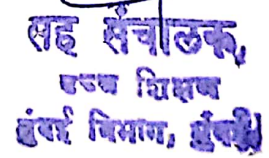 सह संचालक,
उच्च शिक्षण
मुंबई विभाग, मुंबई